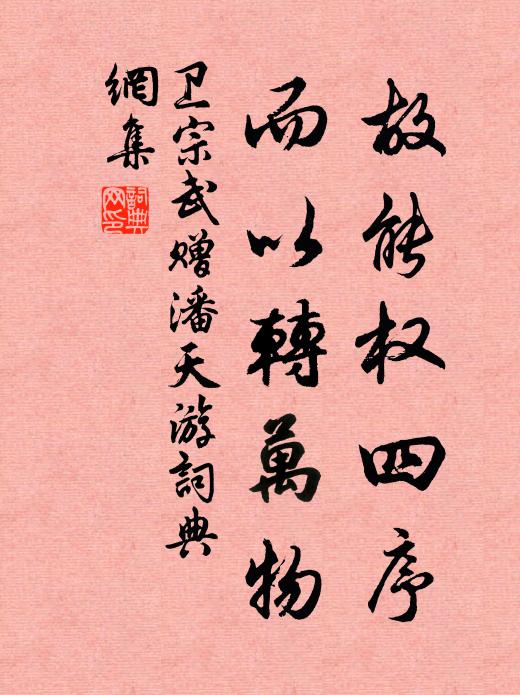 故能权四序
而以轉萬物
卫宗武赠潘天游詞典
網集
詞典
网印